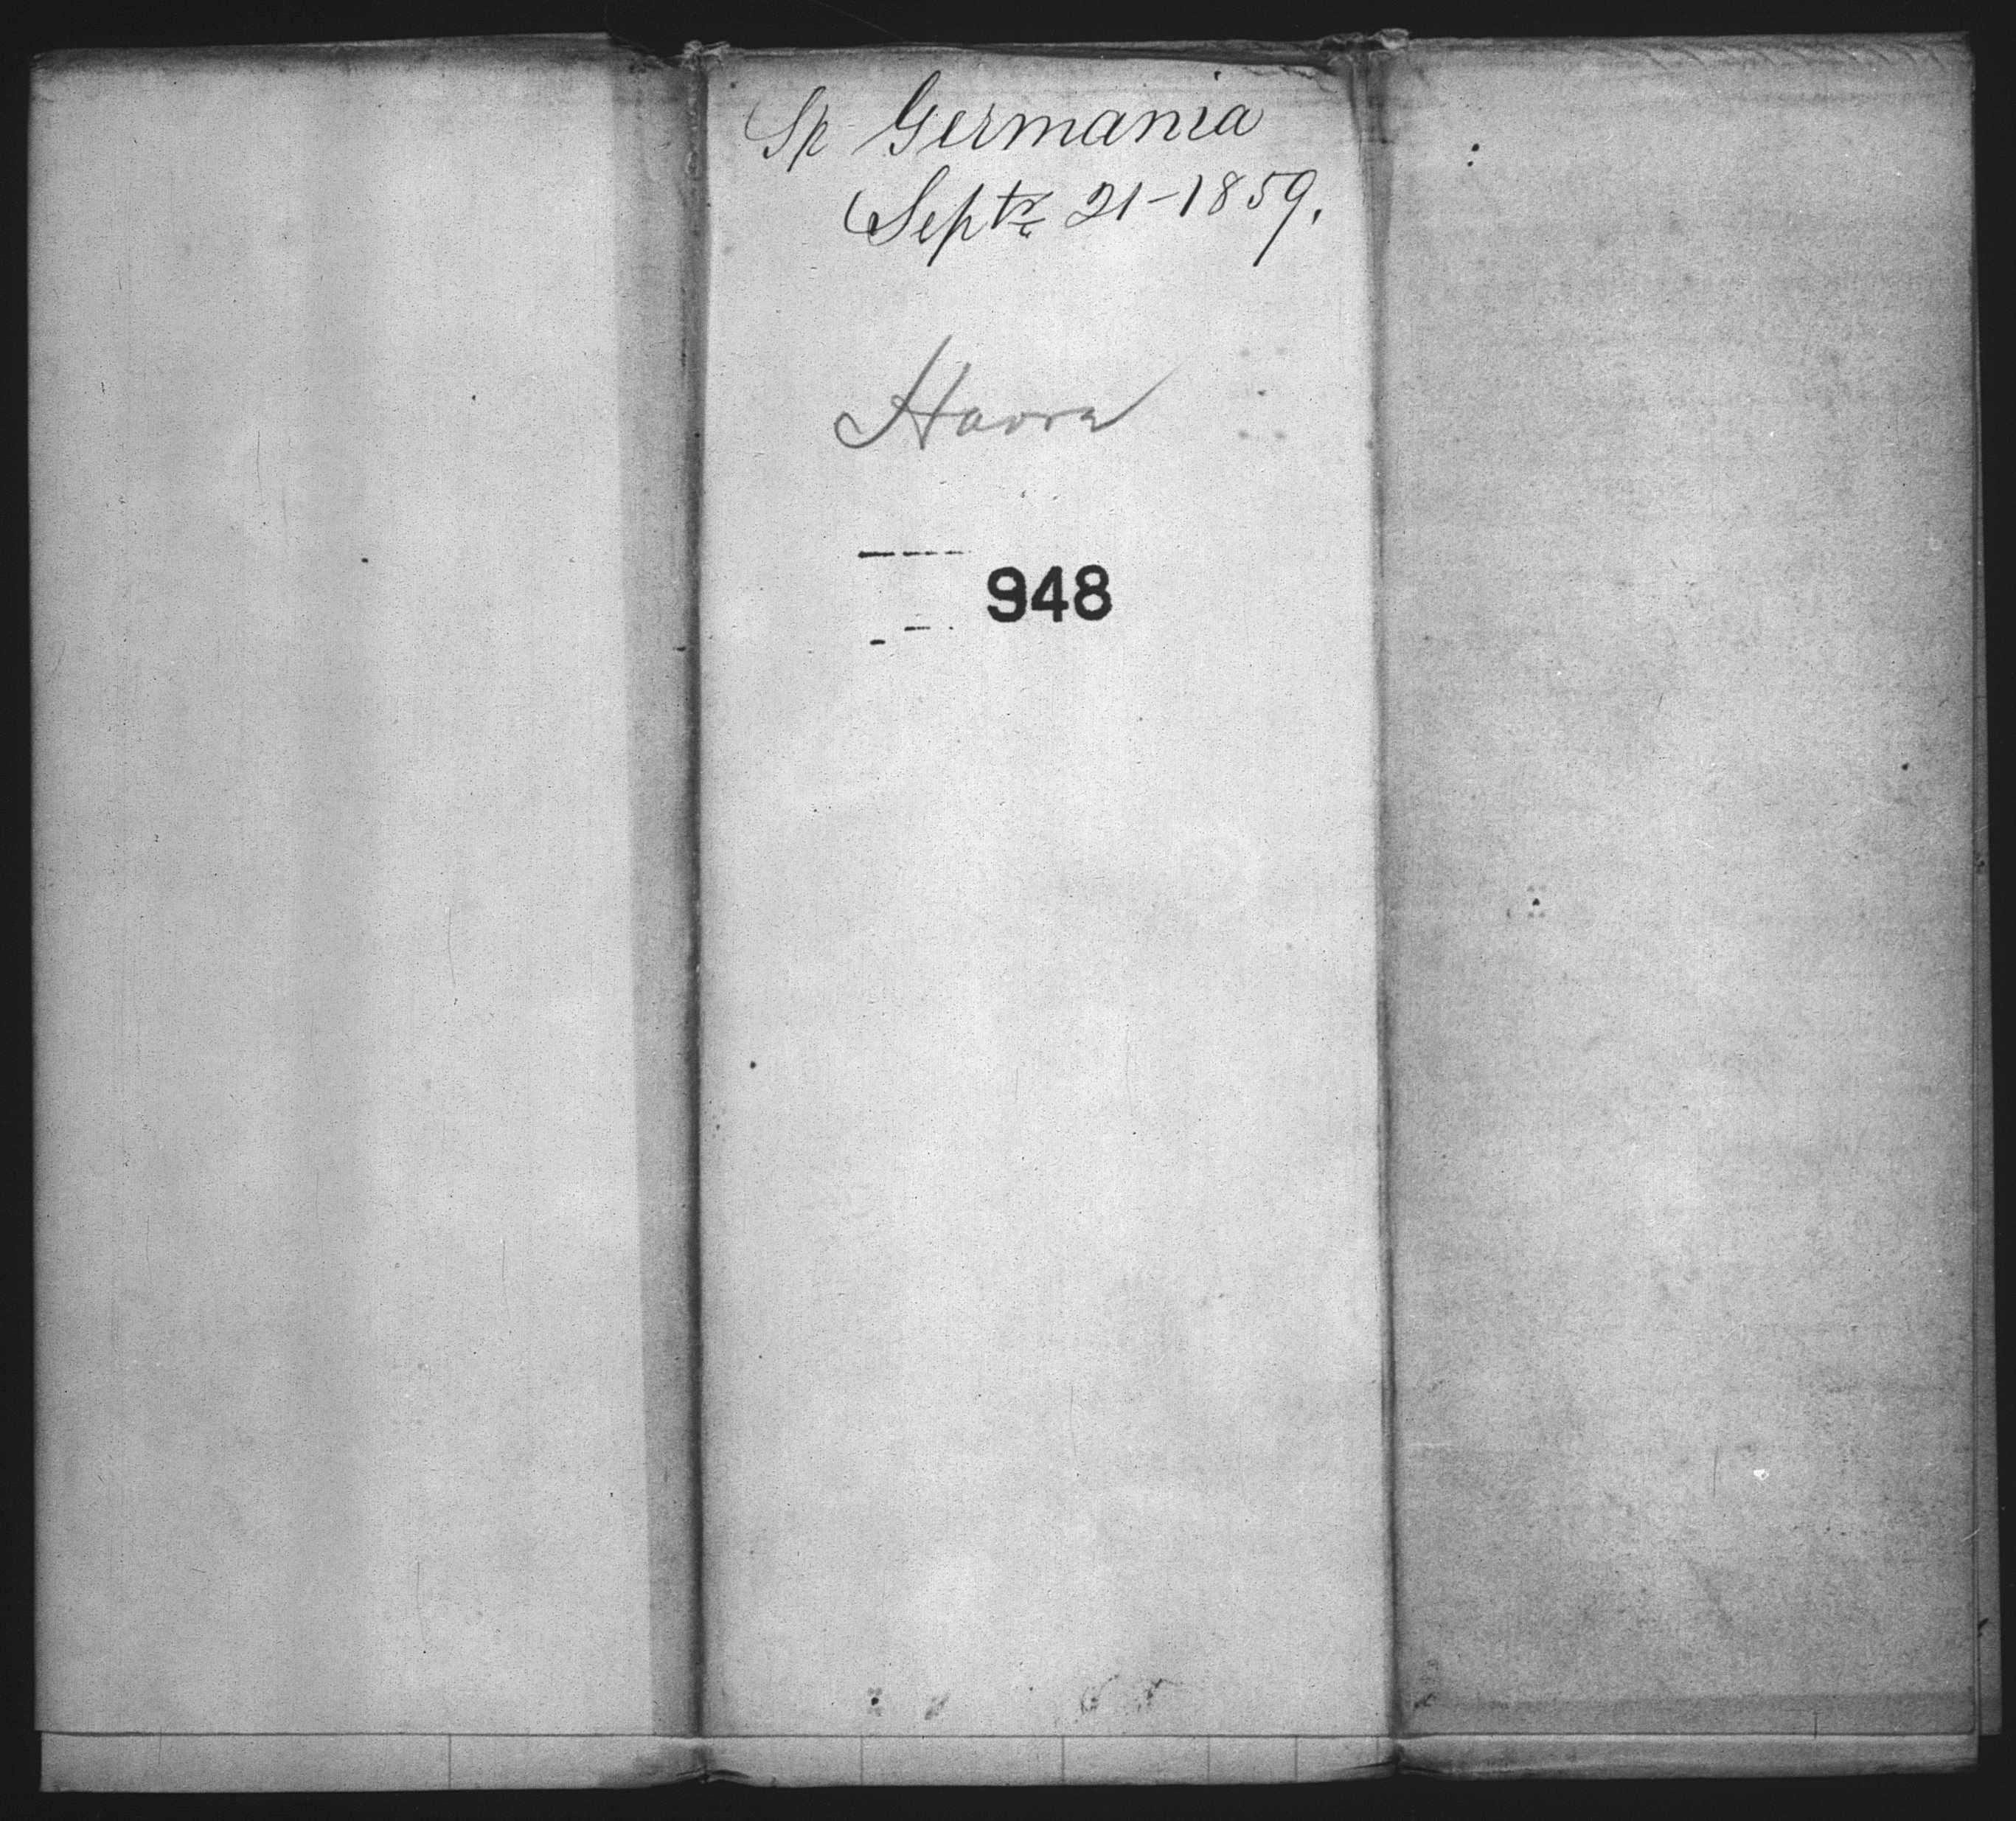 Sp Germania
Septr 21-1859.
Havre
948